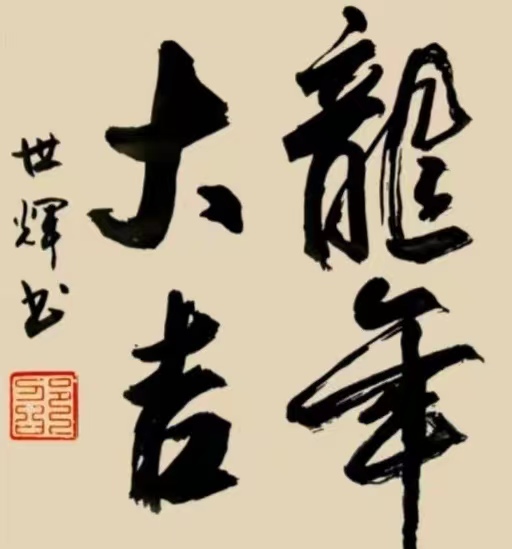 龍年
大吉
世輝书